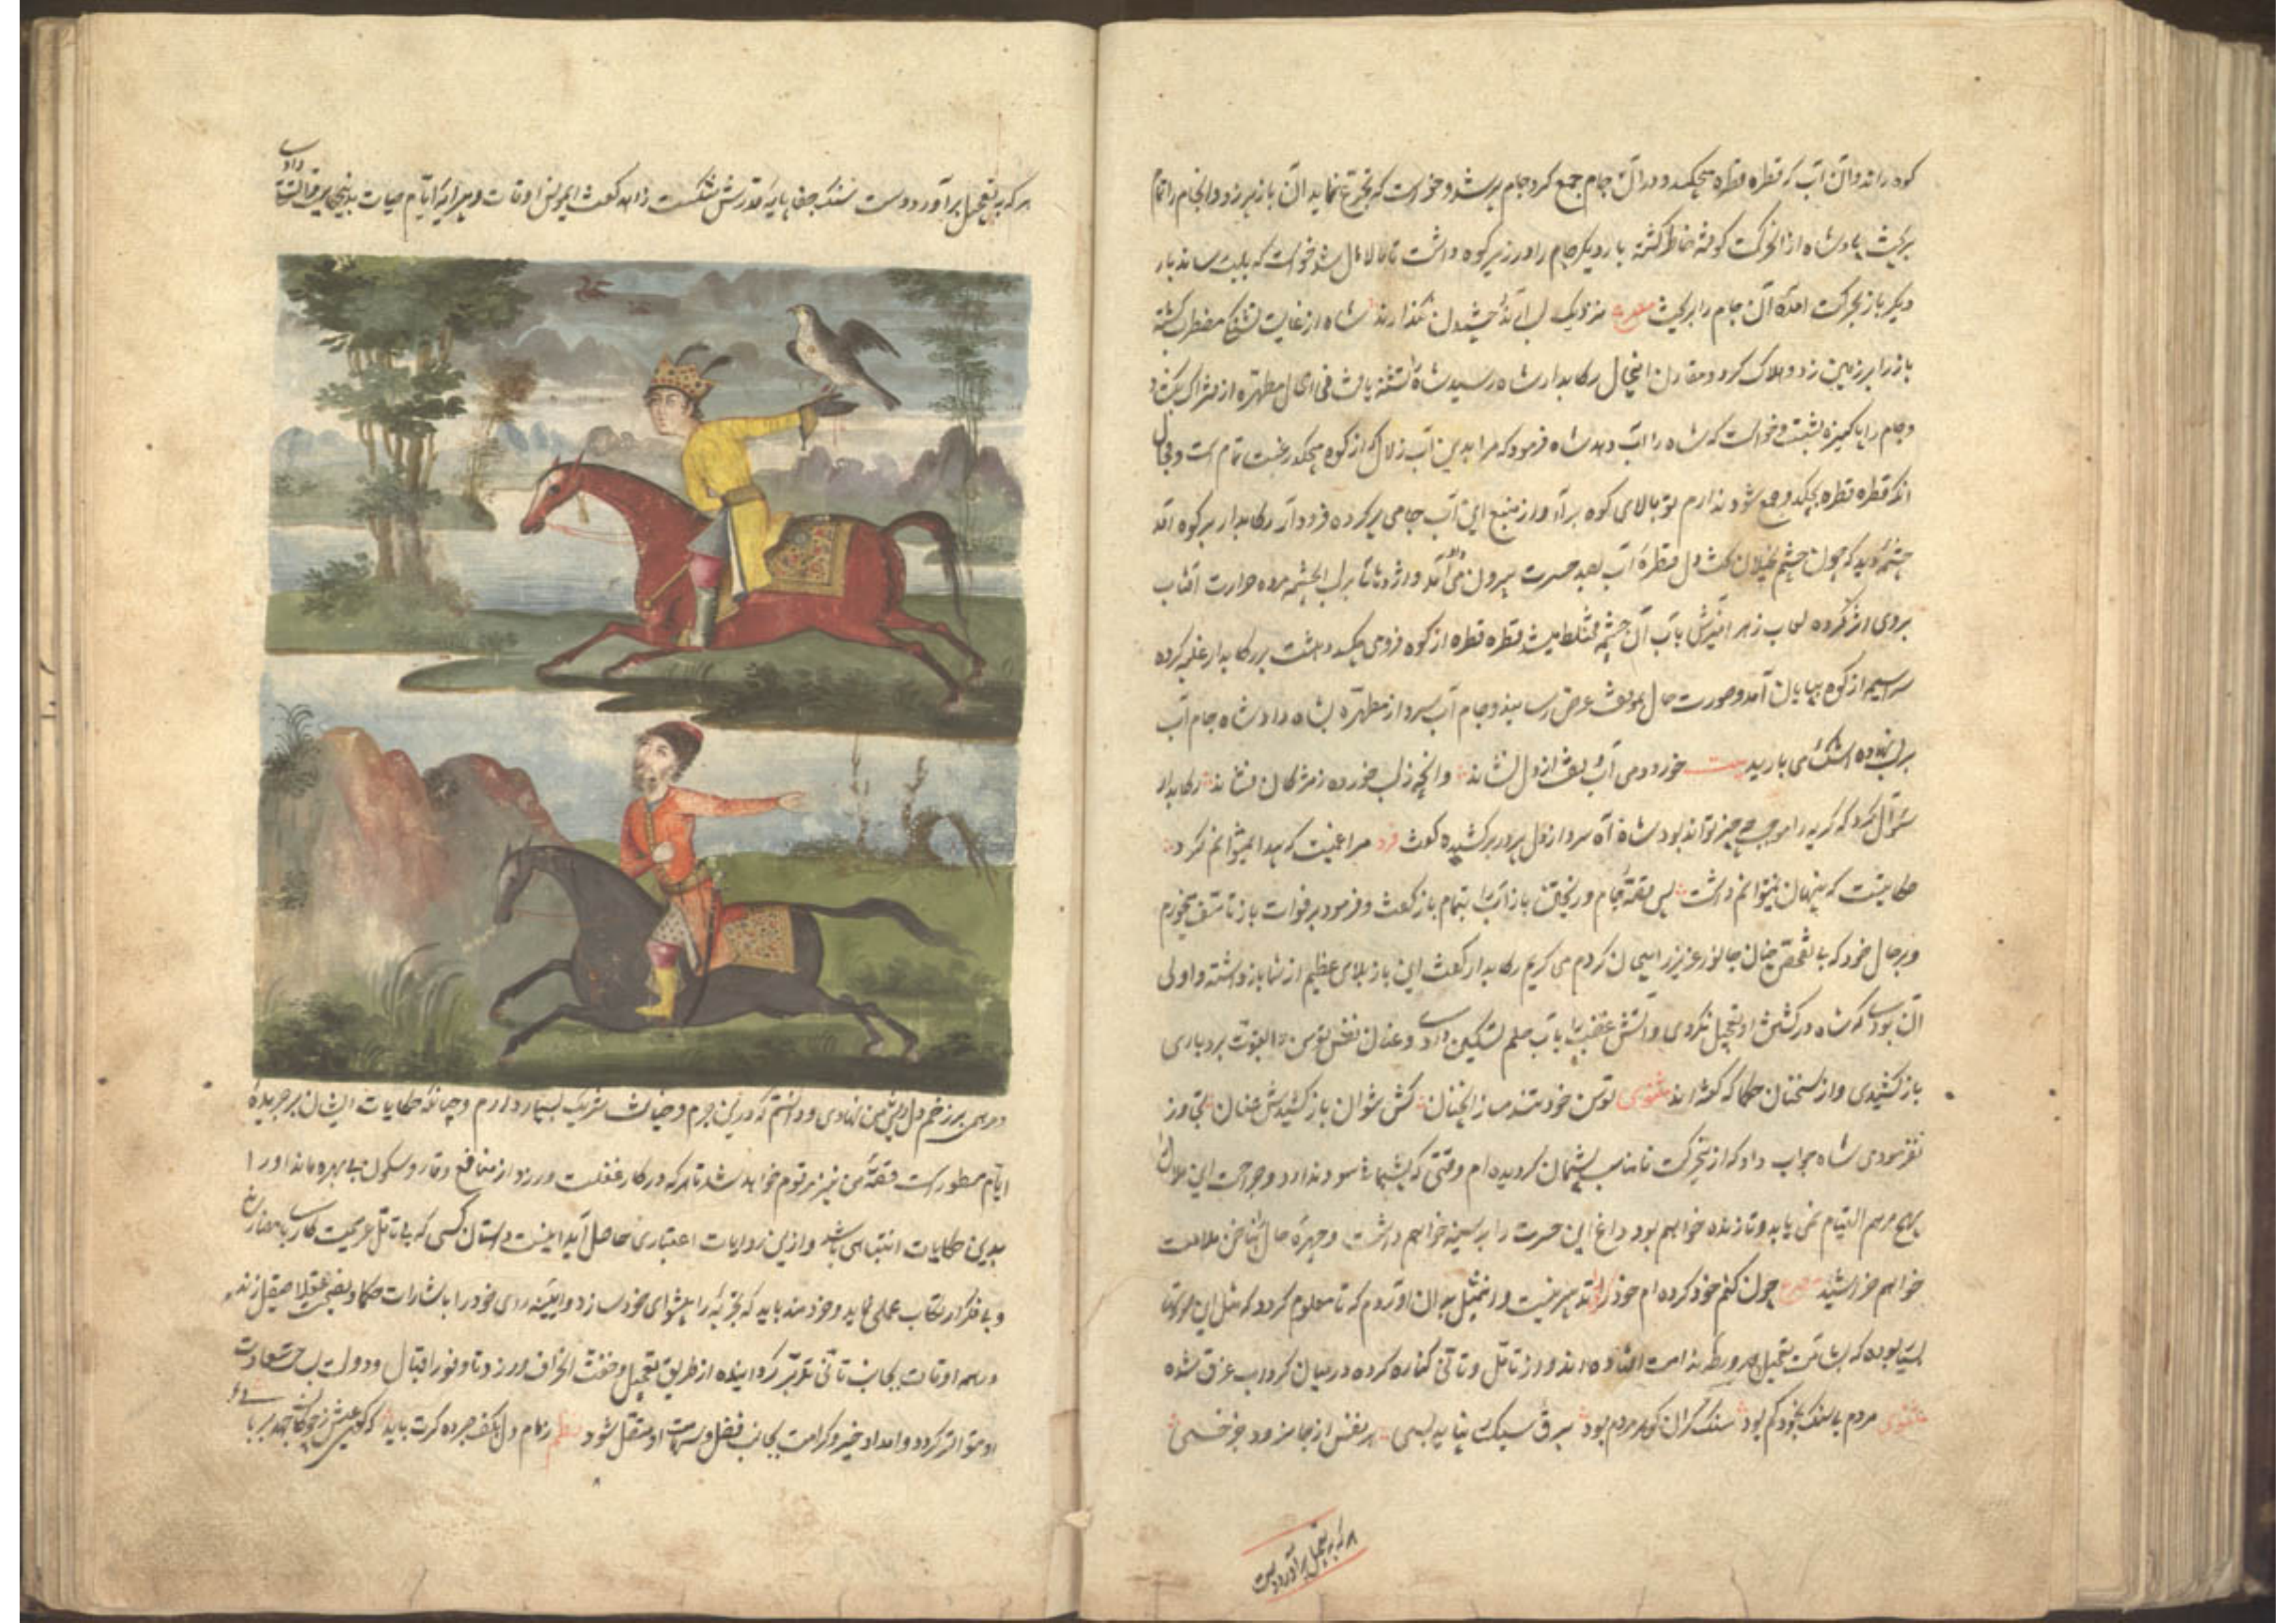 کوه راند و آن آب که قطره قطره میچکید در آن جام جمع کرد جام پر شد و خواست که تجرع نماید آن باز پر زد و آن جام را تمام
بریخت پادشاه از آن حرکت کوفته خاطر گشته بار دیگر جام را در زیر کوه داشت تا مالامال شد خواست که بلب رساند بار
دیگر باز بحرکت آمده آن جام را بریخت مصرع نزدیک لب آرند و چشیدن نگذارند شاه از غایت تشنگی مضطرب گشته
باز را بر زمین زد و هلاک کرد و مقارن اینحال رکابدار شاه رسید شاه تشنه یافت فی الحال مطهره از فتراک بگشاد
و جام را پاکیزه بشست و خواست که شاه را آب دهد شاه فرمود که مرا بدین آب زلال که از کوه میچکد رغبت تمام است و مجال
آنکه قطره قطره بچکد و جمع شود ندارم تو بالای کوه برآ و از منبع این آب جامی پر کرده فرود آر رکابدار بر کوه آمد
چشمه دید که چون چشم بخیلان قطره آب بصد حسرت بیرون می آمد و اژدهائی بر لب آن چشمه مرده حرارت آفتاب
بروی اثر کرده لعاب زهر آمیزش بآب آن چشمه مختلط میشد قطره قطره از کوه فرو می چکید دهشت بر رکابدار غلبه کرده
سراسیمه از کوه بپایان آمد و صورت حال بموقف عرض رسانید و جام آب سرد از مطهره بشاه داد شاه جام آب
بر لب نهاده اشک می بارید بیت خورد دمی آب و تف از دل نشاند وانچه ز لب خورده ز مژگان فشاند رکابدار
سؤال کرد که گریه را موجب چه چیز تواند بود شاه آه سرد از دل پر درد برکشیده گفت فرد مرا غمیست که پیدا نمیتوانم کرد
حکایتیست که پنهان نمیتوانم داشت پس قصه جام و ریختن باز آب را بتمام باز گفت و فرمود بر فوات باز تاسف میخورم
و بر حال خود که بی تفحص چنان جانور عزیز را بیجان کردم می گریم رکابدار گفت این باز بلای عظیم از شما باز داشته و اولی
آن بودی که شاه در کشتن او تعجیل نکردی و آتش غضب را بآب حلم تسکین دادی و عنان نفس توسن را بقوت بردباری
باز کشیدی و از سخنان حکما که گفته اند مثنوی توسن خود تند مساز آنچنان کش نتوان باز کشیدش عنان تجاوز
نفرمودی شاه جواب داد که ازین حرکت نامناسب پشیمان گردیده ام وقتی که پشیمانی سود ندارد و جراحت این ملال
بهیچ مرهم التیام نمی یابد و تا زنده خواهم بود داغ این حسرت را بر سینه خواهم داشت و چهره حال بناخن ملامت
خواهم خراشید مصرع چون کنم خود کرده ام خود کرده را تدبیر نیست و این مثل برای آن آوردم که تا معلوم گردد که مثل این صورتها
بسیار بوده که بشآمت تعجیل در ورطه ندامت افتاده اند و از تامل و تانی کناره کرده در میان گرداب غرق شده
مثنوی مردم بی سنگ بخود کم بود سنگ گران گوهر مردم بود برق سبک نپاید بسی هر نفس از جا نرود جز خسی
هر که به تعجیل برآورد دست
هر که بتعجیل برآورد دست سنگ جفا پایه قدرش شکست زاهد گفت ای مونس اوقات و پیرایه ایام حیات بدین حکایت مرا تسلی دادی
و مرهمی بر زخم دل ریش من نهادی و دانستم که درین جرم و خیانت شریک بسیار دارم و چنانکه حکایات ایشان بر جریده
ایام مسطور است قصه من نیز مرقوم خواهد شد تا هر که در کار غفلت ورزد و از منافع وقار و سکون بی بهره ماند او را
بدین حکایات انتباهی باشد و ازین روایات اعتباری حاصل آید اینست داستان کسی که بی تامل عزیمت کاری بامضا رساند
و بی فکر ارتکاب عملی نماید و خردمند باید که تجربه را پیشوای خود سازد و آیینه رای خود را باشارات حکما و نصیحت عقلا صیقل زند
و همه اوقات بجانب تانی و تدبر گراینده از طریق تعجیل و خفت انحراف ورزد تا وفور اقبال و دولت بساحت سعادت
او متواتر گردد و امداد خیر و کرامت بجانب فضل و سیادت او متصل شود نظم زمام دل بکف صبر ده گرت باید که گوی عیش ز چوگان جهد بر بائی